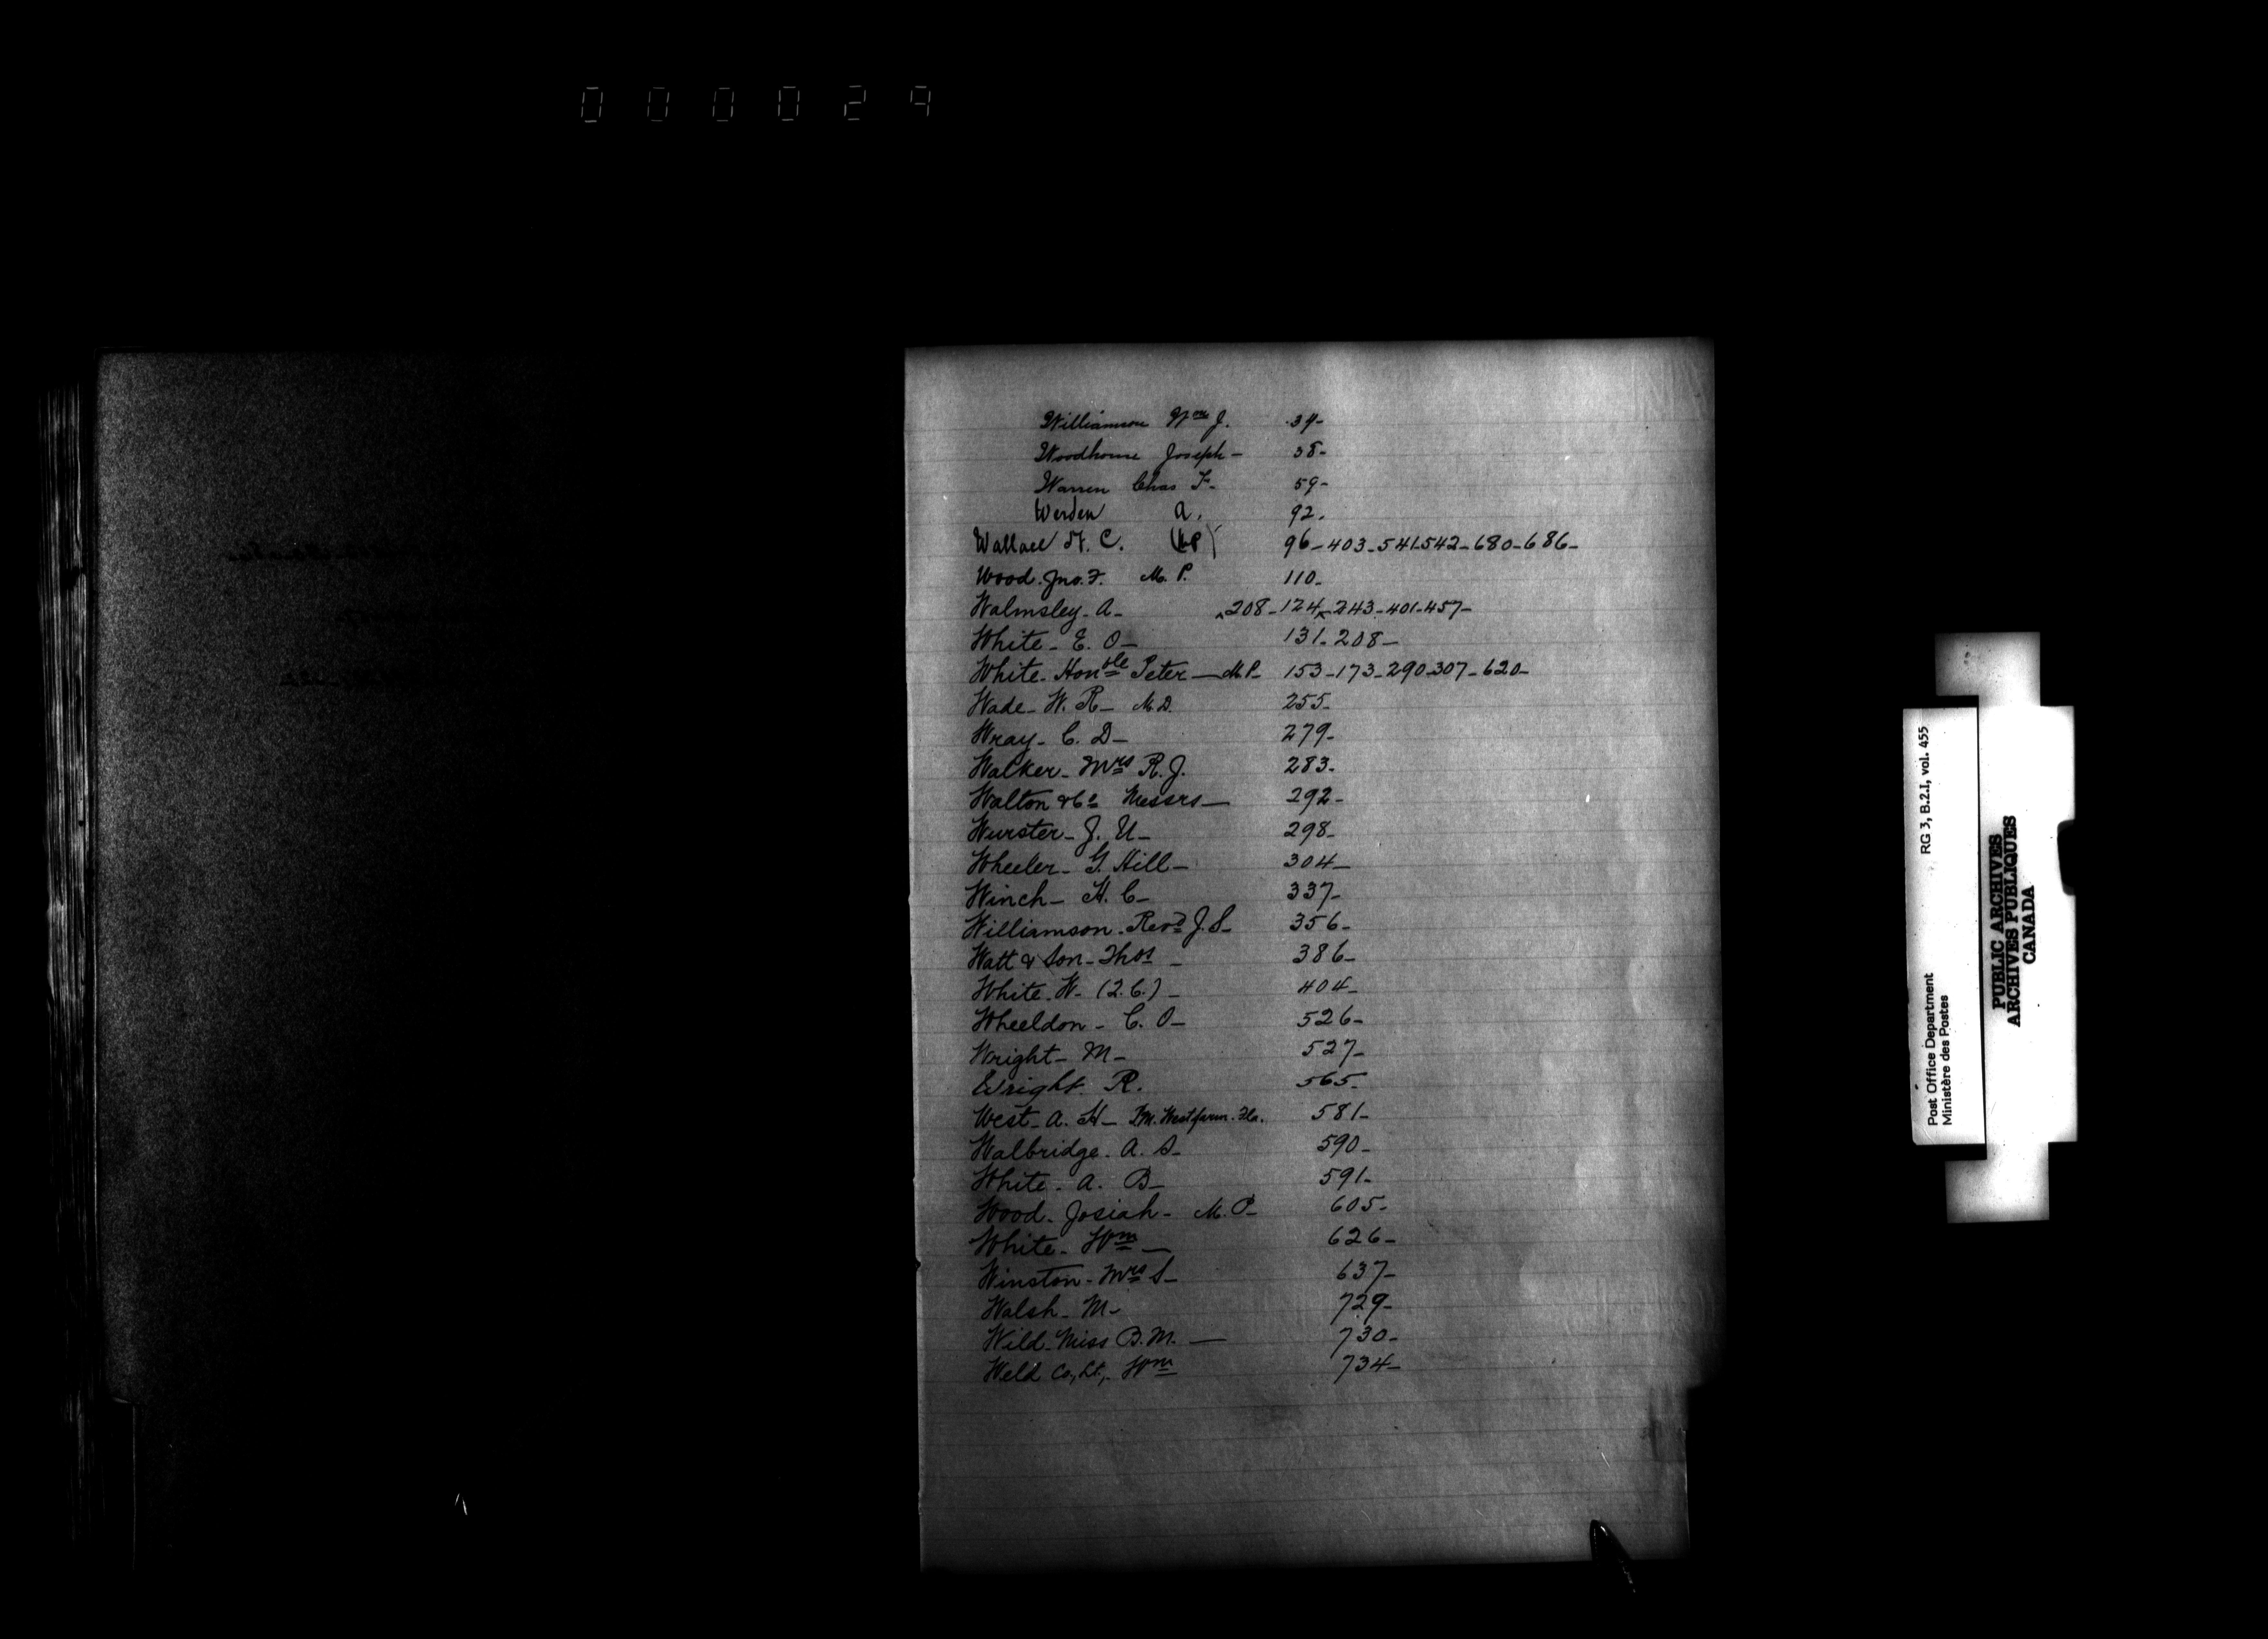 000029
Williamson Wm J. 34-
Woodhouse Joseph - 38-
Warren Chas F. 59-
Werden A. 92.
Wallace N. C. (MP) 96-403-541-542-680-686-
Wood. Jno. F. M. P. 110-
Walmsley- A- ^208-124^-243-401-457-
White- E. O- 131-208-
White- Honble Peter- M.P- 153-173-290-307-620-
Wade- W. R- M.D. 255-
Wray- C. D- 279-
Walker- Mrs R. J. 283-
Walton & Co Messrs- 292-
Wurster- J. U- 298-
Wheeler- G. Hill- 304-
Winch- H. C- 337-
Williamson- Revd J. S- 356-
Watt & Son- Thos - 386-
White- W- (2.C.)- 404-
Wheeldon- C. O- 526-
Wright- M- 527-
Wright. R. 565-
West- A. H- P.M. Westfarm. Fla. 581-
Walbridge- A. S- 590-
White- A. B- 591-
Wood- Josiah- M. P- 605-
White- Wm - 626-
Winston- Mrs S- 637-
Walsh- M- 729-
Wild- Miss B. M. - 730-
Weld Co., Lt., Wm 734-
Post Office Department RG 3, B.2.I, vol. 455
Ministère des Postes
PUBLIC ARCHIVES
ARCHIVES PUBLIQUES
CANADA